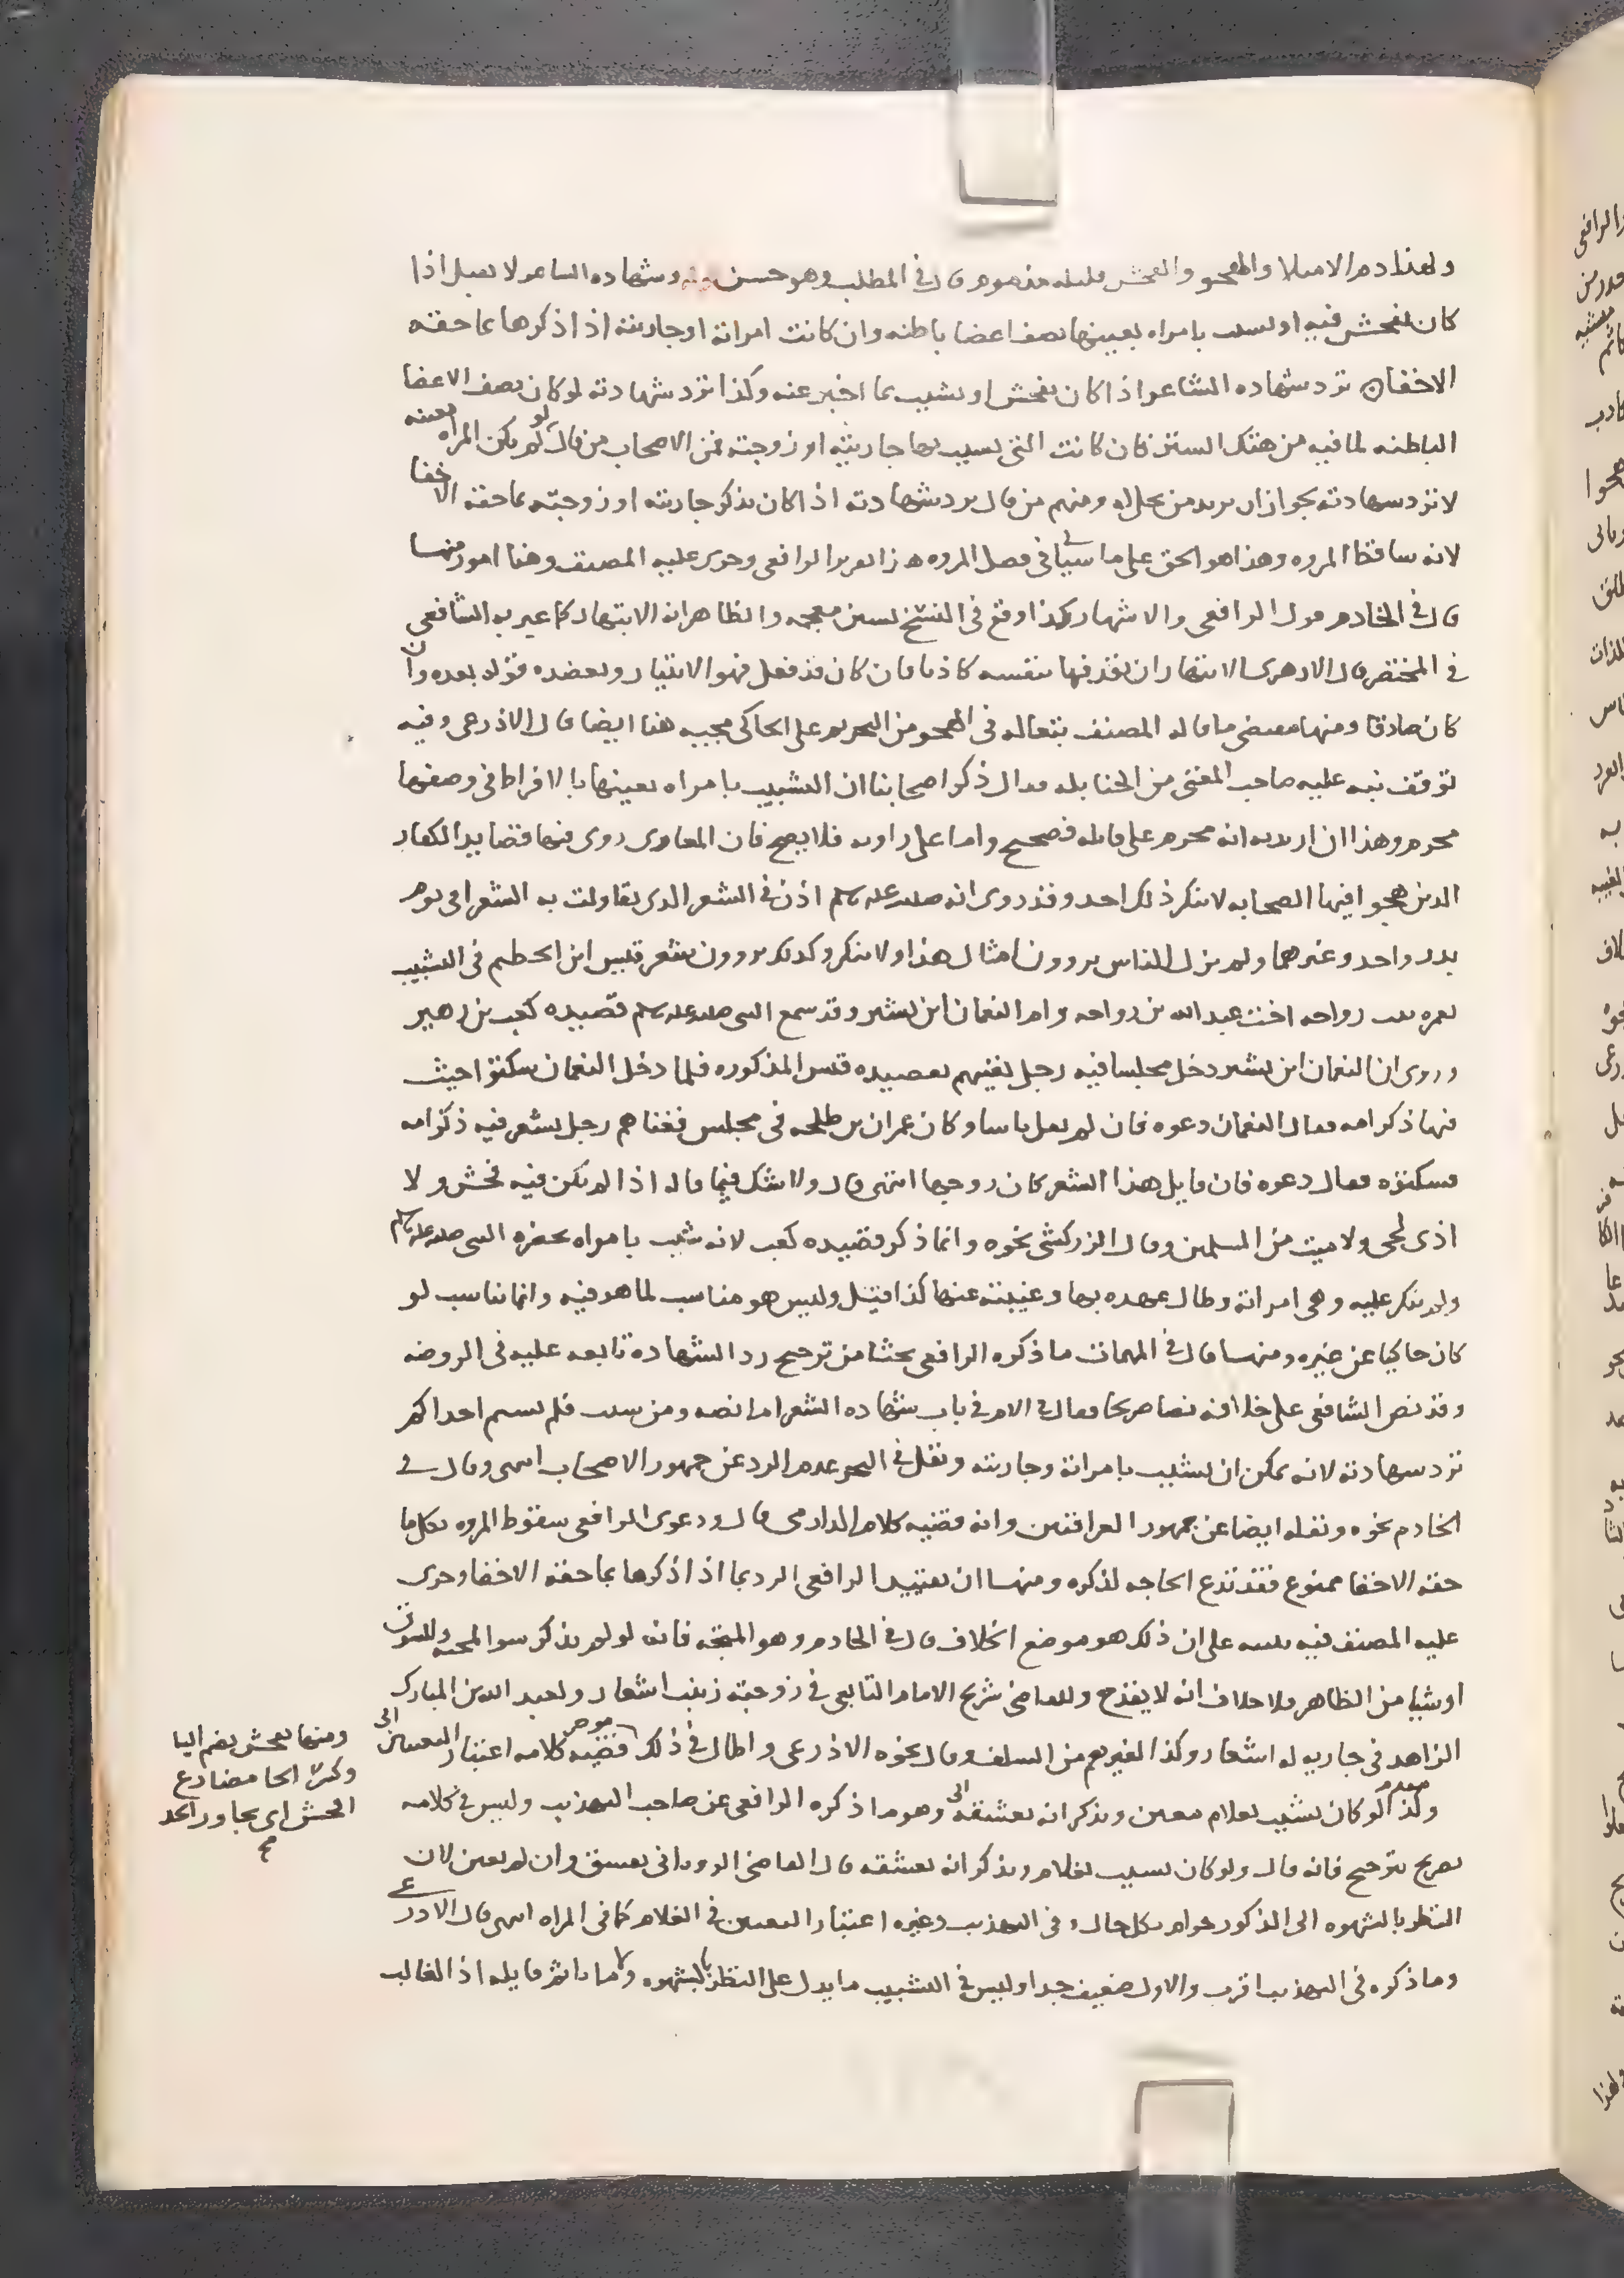 ولهذا دم الامتلا والهجو والفحش قليله مذموم قال في المطلب وهو حسن وشهاده الشاعر لا تقبل اذا
كان يفحش فيه او يشبب بامراه بعينها يصف اعضا باطنه وان كانت امراته او جاريته اذا ذكرها بما حقه
الاخفا ترد شهاده الشاعر اذا كان يفحش او يشبب بما اخبر عنه وكذا ترد شهادته لو كان يصف الاعضا
الباطنه لما فيه من هتك الستر فان كانت التي يشبب بها جاريته او زوجته فمن الاصحاب من قال لو لم يكن المراه معينه
لا ترد شهادته بجواز ان يريد من يحل له ومنهم من قال يرد شهادته اذا كان يذكر جاريته او زوجته بما حقه الاخفا
لانه ساقط المروه وهذا هو الحق على ما سياتي في فصل المروه هذا تقرير الرافعي وجرى عليه المصنف وهنا امور منها
قال في الخادم قول الرافعي والاشهار كذا وقع في النسخ بسين معجمه والظاهر انه الابتهار كما عبر به الشافعي
في المختصر قال الازهري الابتهار ان يقذفها بنفسه كاذبا فان كان قد فعل فهو الابتيار ويعضده قوله بعده وان
كان صادقا ومنها مقتضى ما قاله المصنف بتعاله في الهجو من التحريم على الحاكي مجيبه هنا ايضا قال الاذرعي وفيه
توقف نبه عليه صاحب المغني من الحنابله فقال ذكر اصحابنا ان التشبيب بامراه بعينها بالافراط في وصفها
محرم وهذا ان اريد به انه محرم على قايله فصحيح واما على راويه فلا يصح فان المغازي روى فيها قصايد الكفار
الدين هجوا فيها الصحابه لا ينكر ذلك احد وقد روى انه صلى الله عليه وسلم اذن في الشعر الدي تقاولت به الشعرا في يوم
بدر واحد وغيرهما ولم يزل الناس يروون امثال هذا ولا ينكر وكذلك يروون شعر قيس ابن الحطيم في التشبيب
بعمره بنت رواحه اخت عبد الله بن رواحه وام النعمان ابن بشير وقد سمع النبي صلى الله عليه وسلم قصيده كعب بن زهير
وروى ان النعمان ابن بشير دخل مجلسا فيه رجل يغنيهم بقصيده قيس المذكوره فلما دخل النعمان سكتوا حيث
فيها ذكر امه فقال النعمان دعوه فان لم يقل باسا وكان عمران بن طلحه في مجلس فغناهم رجل بشعر فيه ذكر امه
فسكتوه فقال دعوه فان قايل هذا الشعر كان زوجها انتهى قال ولا شك فيما قاله اذا لم يكن فيه فحش ولا
اذى لحى ولا ميت من المسلمين وقال الزركشي نحوه وانما ذكر قصيده كعب لانه شبب بامراه بحضره النبي صلى الله عليه وسلم
ولم ينكر عليه وهي امراته وطال عهده بها وغيبته عنها كذا قيل وليس هو مناسب لما هو فيه وانما يناسب لو
كان حاكيا عن غيره ومنها قال في المهمات ما ذكره الرافعي بحثا من ترجيح رد الشهاده تابعه عليه في الروضه
وقد نص الشافعي على خلافه نصا صريحا فقال في الام في باب شهاده الشعرا ما نصه ومن شبب فلم يسم احدا لم
ترد شهادته لانه يمكن ان يشبب بامراته وجاريته ونقل في البحر عدم الرد عن جمهور الاصحاب انتهى وقال في
الخادم نحوه ونقله ايضا عن جمهور العراقيين وانه قضيه كلام الدارمي قال ودعوى الرافعي سقوط المروه بكل ما
حقه الاخفا ممنوع فقد تدع الحاجه لذكره ومنها ان تقييد الرافعي الرد بما اذا ذكرها بما حقه الاخفا وجرى
عليه المصنف فيه تنبيه على ان ذلك هو موضع الخلاف قال في الخادم وهو المتجه فانه لو لم يذكر سوا المحبه والشوق
او شيا من الظاهر فلا خلاف انه لا يقدح وللقاضي شريح الامام التابعي في زوجته زينب اشعار ولعبد الله بن المبارك
الزاهد في جاريه له اشعار وكذا لغيرهم من السلف وقال نحوه الاذرعي واطال في ذلك قضيه كلامه اعتبار التعيين الى
وكذا لو كان يشبب بغلام معين ويذكر انه يعشقه الى وهو ما ذكره الرافعي عن صاحب التهذيب وليس في كلامه
تصريح بترجيح فانه قال ولو كان يشبب بغلام ويذكر انه يعشقه قال القاضي الروياني يفسق وان لم يعين لان
النظر بالشهوه الى الذكور حرام بكل حال وفي التهذيب وغيره اعتبار التعيين في الغلام كما في المراه انتهى قال الاذرعي
وما ذكره في التهذيب اقرب والاول ضعيف جدا وليس في التشبيب ما يدل على النظر بالشهوه ولا ما ياثم قايله اذ الغالب
ومنها يفحش بضم اليا
وكسر الحا مضارع
افحش اي يجاوز الحد